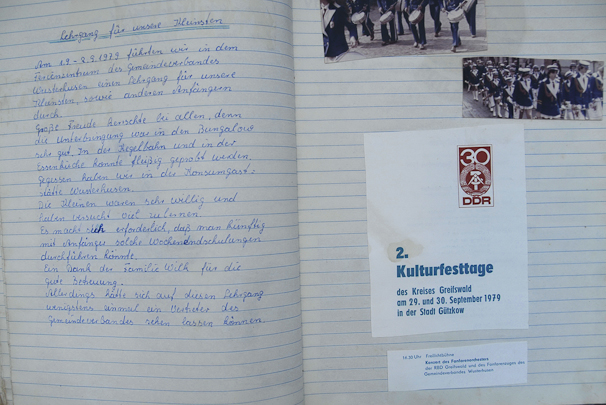 Lehrgang für unsere Kleinsten
Am 1.9.-2.9.1979 führten wir in dem
Ferienzentrum des Gemeindeverbandes
Wusterhusen einen Lehrgang für unsere
Kleinsten, sowie anderen Anfängern
durch.
Große Freude herrschte bei allen, denn
die Unterbringung war in den Bungalows
sehr gut. In der Kegelbahn und in der
konnte fleißig geprobt werden,
gegessen haben wir in der Konsumgast-
stätte Wusterhusen.
Die Kleinen waren sehr willig und
haben versucht viel zu lernen.
Es macht sich erforderlich, daß man künftig
mit Anfänger solche Wochenendschulungen
durchführen könnte.
ein Dank der Familie Wilk für die
gute Betreuung.
Allerdings hätte sich auf diesen Lehrgang
wenigstens einmal ein Vertreter des
Gemeindeverbandes sehen lassen können.
30
DDR
2.
Kulturfesttage
des Kreises Greifswald
am 29. und 30. September 1979
in der Stadt Gützkow
Uhr Freilichtbühne
Konzert des Fanfarenorchesters
der BBO Greifswald und des Fanfarenzuges des
Gemeindeverbandes Wusterhusen